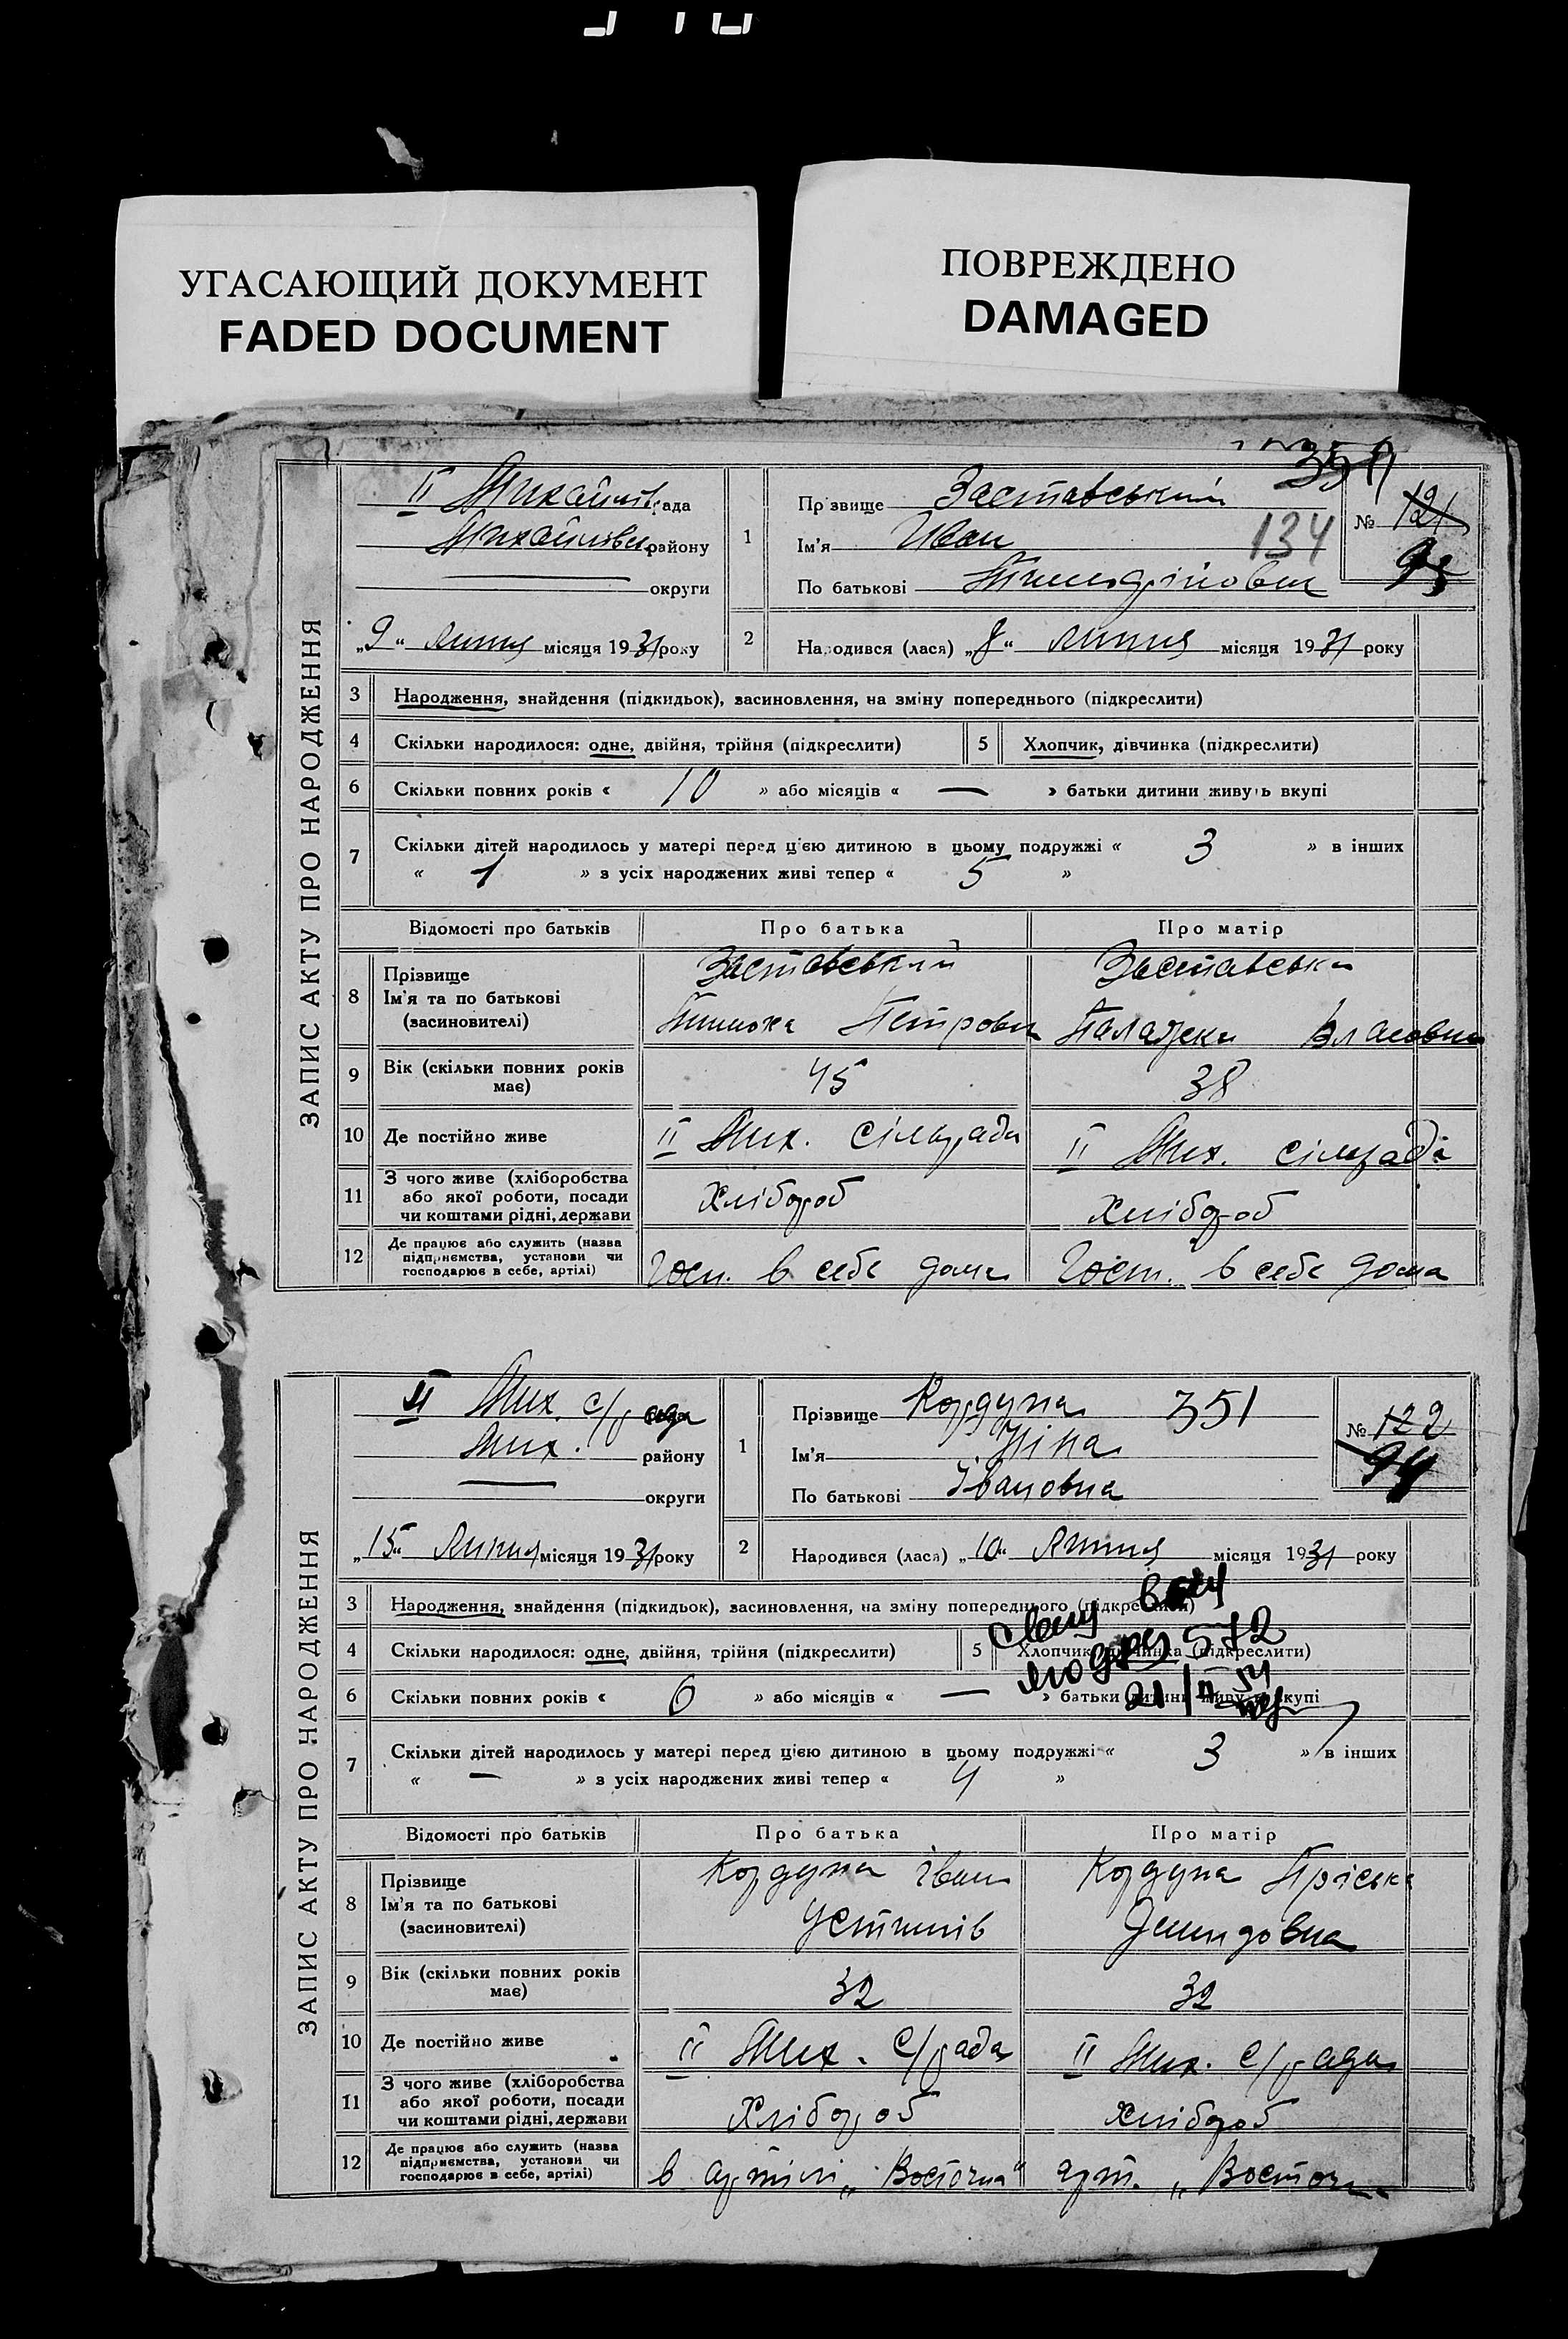 УГАСАЮЩИЙ ДОКУМЕНТ
FADED DOCUMENT
ПОВРЕЖДЕНО
DAMAGED
ЗАПИС АКТУ ПРО НАРОДЖЕННЯ
II Михайлів рада
Михайлівськ району
округи
„9“ липня місяця 1931 року
1
Прізвище Заставський
Ім'я Иван 134
По батькові
№ 121
93
2
Народився (лася) „8“ липня місяця 1931 року
3 Народження, знайдення (підкидьок), засиновлення, на зміну попереднього (підкреслити)
4 Скільки народилося: одне, двійня, трійня (підкреслити) 5 Хлопчик, дівчинка (підкреслити)
6 Скільки повних років « 10 » або місяців « — » батьки дитини живуть вкупі
7 Скільки дітей народилось у матері перед цією дитиною в цьому подружжі « 3 » в інших
« 1 » з усіх народжених живі тепер « 5 »
Відомості про батьків Про батька Про матір
8 Прізвище
Ім'я та по батькові
(засиновителі)
Заставський
Тимоха Петрович
Заставська
Палажка Власовна
9 Вік (скільки повних років має) 45 38
10 Де постійно живе II Мих. сільрада II Мих. сільраді
11 З чого живе (хліборобства
або якої роботи, посади
чи коштами рідні, держави
Хлібороб Хлібороб
12 Де працює або служить (назва
підприємства, установи чи
господарює в себе, артілі)
Госп. в себе дома Госп. в себе дома
ЗАПИС АКТУ ПРО НАРОДЖЕННЯ
II Мих. с/рада
Мих. району
округи
„15“ Липня місяця 1931 року
1
Прізвище Кордупа 351
Ім'я Ніна
По батькові Івановна
№ 122
94
2
Народився (лася) „10“ Липня місяця 1931 року
3 Народження, знайдення (підкидьок), засиновлення, на зміну попереднього (підкреслити)
4 Скільки народилося: одне, двійня, трійня (підкреслити) 5 Хлопчик, дівчинка (підкреслити)
572
21/II 54
6 Скільки повних років « 6 » або місяців « — » батьки дитини живуть вкупі
7 Скільки дітей народилось у матері перед цією дитиною в цьому подружжі « 3 » в інших
« — » з усіх народжених живі тепер « 4 »
Відомості про батьків Про батька Про матір
8 Прізвище
Ім'я та по батькові
(засиновителі)
Кордупа Іван
Устинів
Кордупа Пріська
Демидовна
9 Вік (скільки повних років має) 32 32
10 Де постійно живе II Мих. с/рада II Мих. с/рада
11 З чого живе (хліборобства
або якої роботи, посади
чи коштами рідні, держави
Хлібороб Хлібороб
12 Де працює або служить (назва
підприємства, установи чи
господарює в себе, артілі)
в артілі „Восточн“ арт. „Восточн